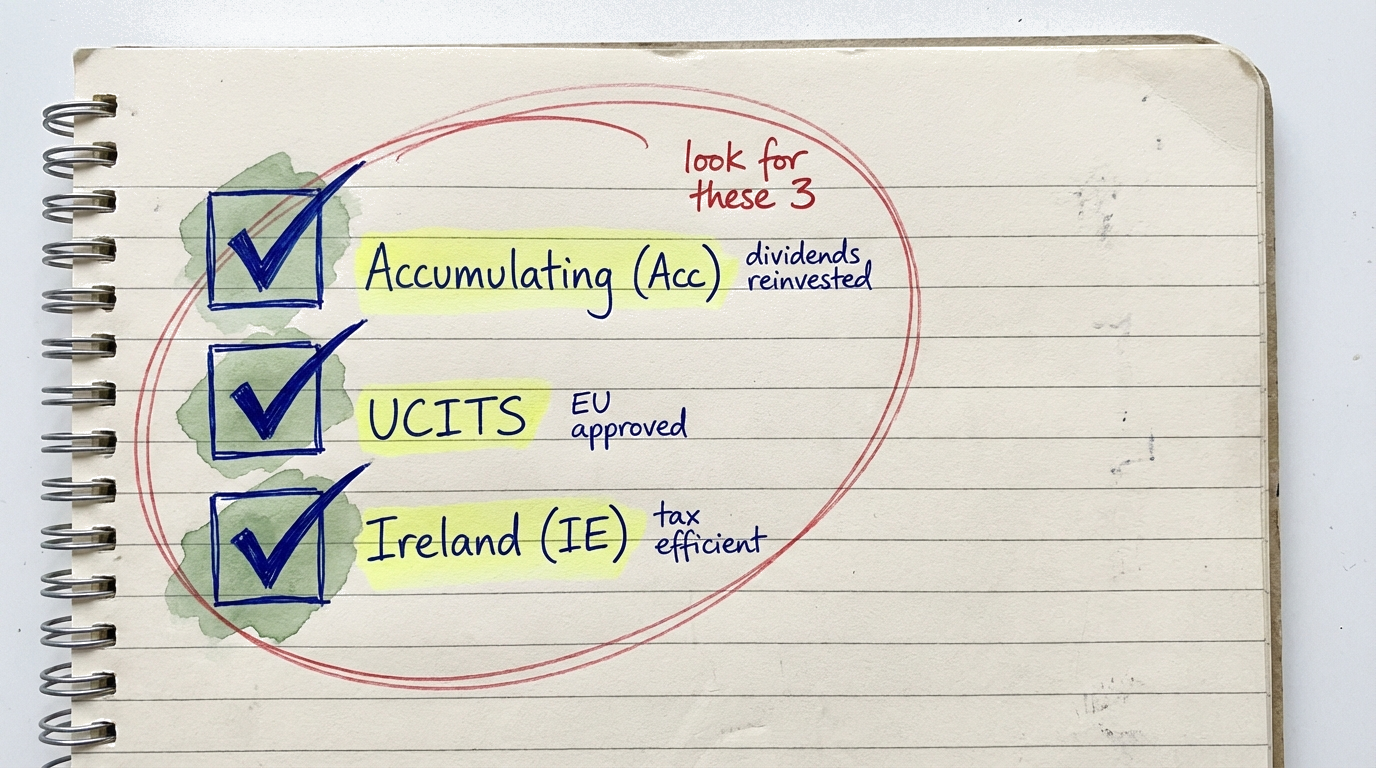 look for
these 3
Accumulating (Acc)
dividends
reinvested
UCITS
EU
approved
Ireland (IE)
tax
efficient